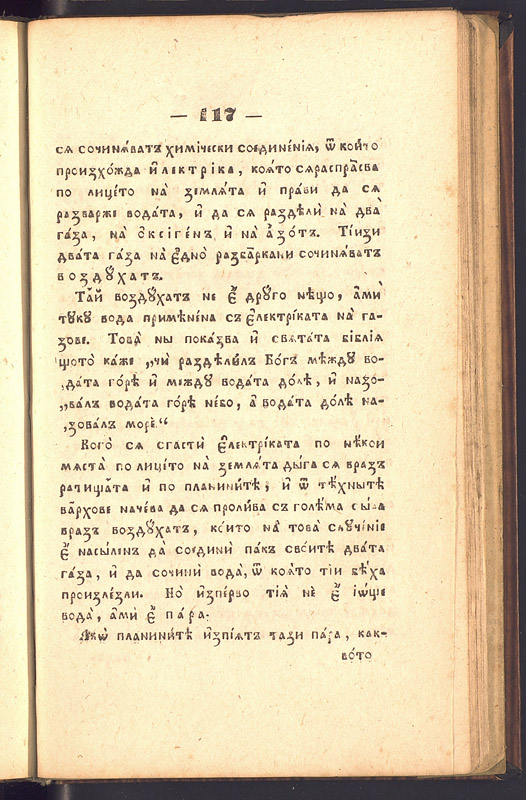 — 117 —
ся сочинѧ́ватъ химі́чески соединє́нїѧ, ѿ кои́то
произхо́жда и҆лєктрі́ка, коѧто сѧраспрѧ́сва
по лицє́то на̀ зємлѧ́та и҆ пра́ви да сѧ
разва́ржє вода́та, и҆ да сѧ раздѣли̑ на̀ два̀
га́за, на̀ о҆ѯігє́нъ и҆ на̀ а҆зо́тъ. Тїизи
два́та га́за на̀ є҆дно̀ разба̑ркани сочинѧ́ватъ
воздꙋ́хатъ.
Та̑й воздꙋ́хатъ нє є҆̀ дрꙋ́го нѣ́що, а҆ми́
тꙋкꙋ вода примѣнє́на съ є҆лєктрі́ката на̀ га-
зовє. Това̀ ны пока́зва и҆ свѧта́та бі́блїѧ
щото̀ ка́жє „чи̑ раздѣли́лъ Бо́гъ мє́ждꙋ во-
„да́та го́рѣ и҆ мєждꙋ вода́та до́лѣ, и҆ назо̀-
„ва́лъ вода́та го́рѣ нє́бо, а҆ вода́та до́лѣ на-
„зова́лъ морє̀.“
Кого̀ сѧ сгасти̑ є҆лєктрі́ката по нѣ́кои
мѧста̀ по лицє́то на̀ зємлѧ́та ды́га сѧ вразъ
рачища́та и҆ по планини́тѣ, и҆ ѿ тѣ́хнытѣ
ва̑рховє начє́ва да сѧ проли́ва съ голѣ́ма сы́ла
вразъ воздꙋ́хатъ, ко́ито на̀ това̀ слꙋчє́нїє
є҆̀ насы́лєнъ да̀ соєдини̑ пакъ сво́итѣ два́та
га́за, и҆ да сочини̑ вода̀, ѿ коѧто ті́и бѣ́ха
произлє́зли. Но̀ и҆зпє́рво ті́ѧ нє̀ є҆̀ і҆о́щє
вода̀, а҆ми̑ є҆̀ па́ра.
А҆кѡ̀ планини́тѣ и҆зпі́ѧтъ тази па́ра, как-
во́то